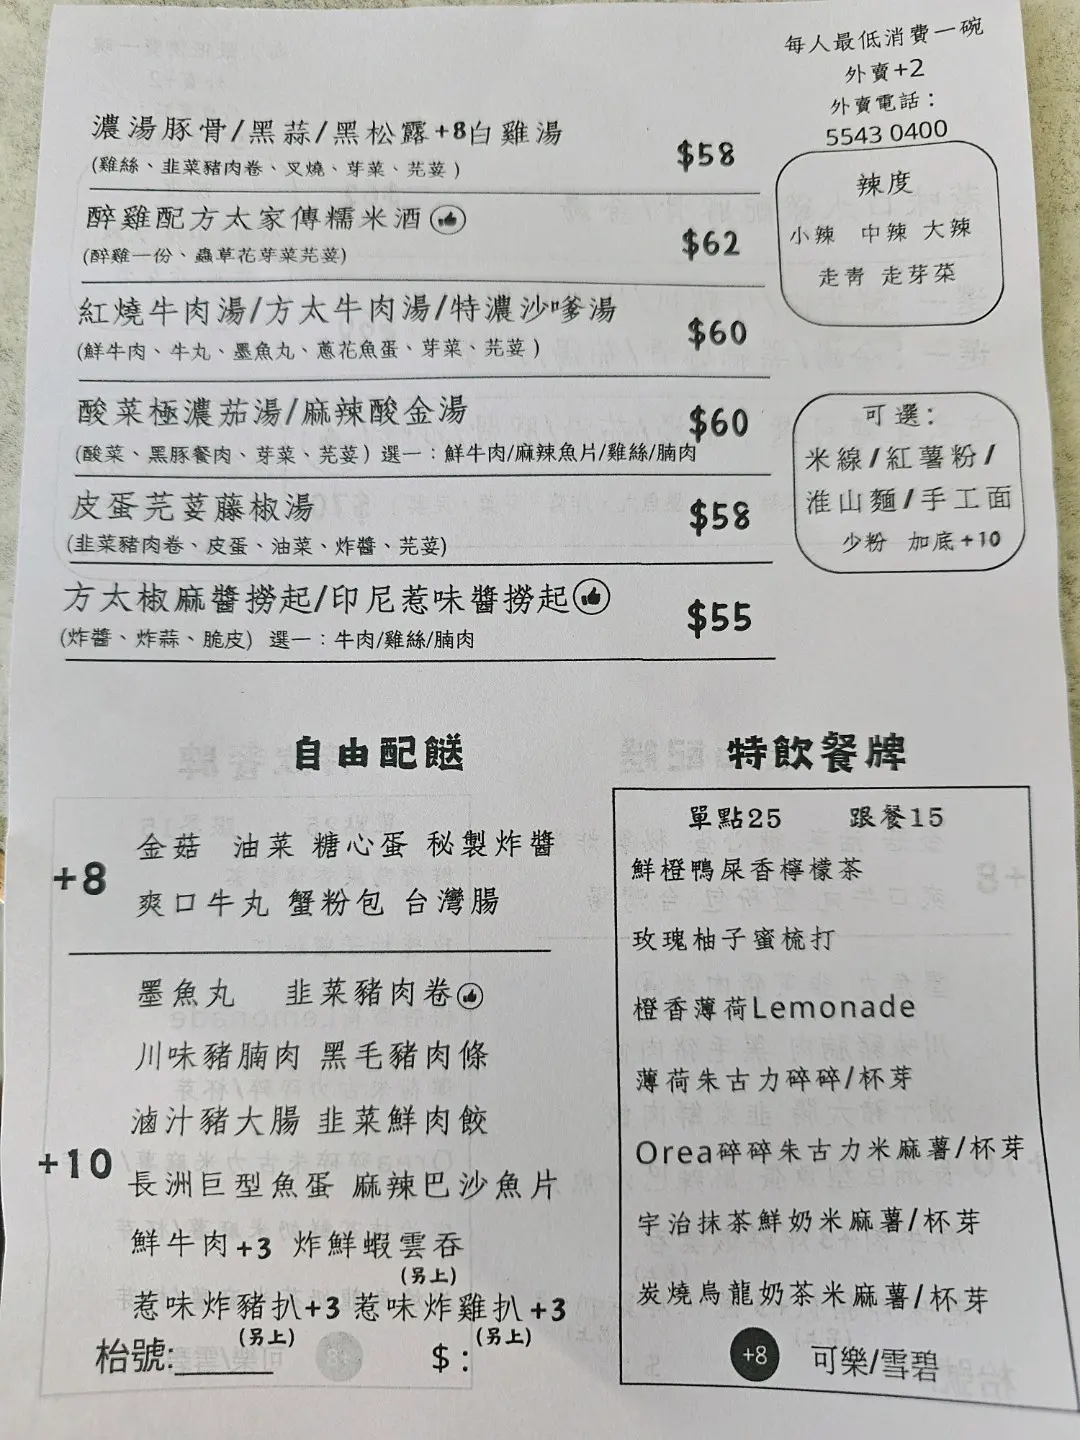 每人最低消費一碗
外賣+2
外賣電話：
5543 0400
濃湯豚骨/黑蒜/黑松露+8白雞湯
$58
(雞絲、韭菜豬肉卷、叉燒、芽菜、芫荽)
醉雞配方太家傳糯米酒
$62
(醉雞一份、蟲草花芽菜芫荽)
紅燒牛肉湯/方太牛肉湯/特濃沙嗲湯
$60
(鮮牛肉、牛丸、墨魚丸、蔥花魚蛋、芽菜、芫荽)
酸菜極濃茄湯/麻辣酸金湯
$60
(酸菜、黑豚餐肉、芽菜、芫荽) 選一：鮮牛肉/麻辣魚片/雞絲/腩肉
皮蛋芫荽藤椒湯
$58
(韭菜豬肉卷、皮蛋、油菜、炸醬、芫荽)
方太椒麻醬撈起/印尼惹味醬撈起
$55
(炸醬、炸蒜、脆皮) 選一：牛肉/雞絲/腩肉
辣度
小辣 中辣 大辣
走青 走芽菜
可選：
米線/紅薯粉/
淮山麵/手工面
少粉 加底+10
自由配餸
+8
金菇 油菜 糖心蛋 秘製炸醬
爽口牛丸 蟹粉包 台灣腸
+10
墨魚丸 韭菜豬肉卷
川味豬腩肉 黑毛豬肉條
滷汁豬大腸 韭菜鮮肉餃
長洲巨型魚蛋 麻辣巴沙魚片
鮮牛肉+3 炸鮮蝦雲吞
(另上)
惹味炸豬扒+3 惹味炸雞扒+3
(另上) (另上)
枱號:______ $:
特飲餐牌
單點25 跟餐15
鮮橙鴨屎香檸檬茶
玫瑰柚子蜜梳打
橙香薄荷Lemonade
薄荷朱古力碎碎/杯芽
Orea碎碎朱古力米麻薯/杯芽
宇治抹茶鮮奶米麻薯/杯芽
炭燒烏龍奶茶米麻薯/杯芽
+8 可樂/雪碧